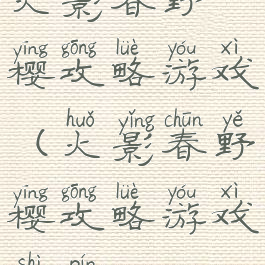 火影春野
yīng gōng lüè yóu xì
樱攻略游戏
huǒ yǐng chūn yě
（火影春野
yīng gōng lüè yóu xì
樱攻略游戏
shì pín